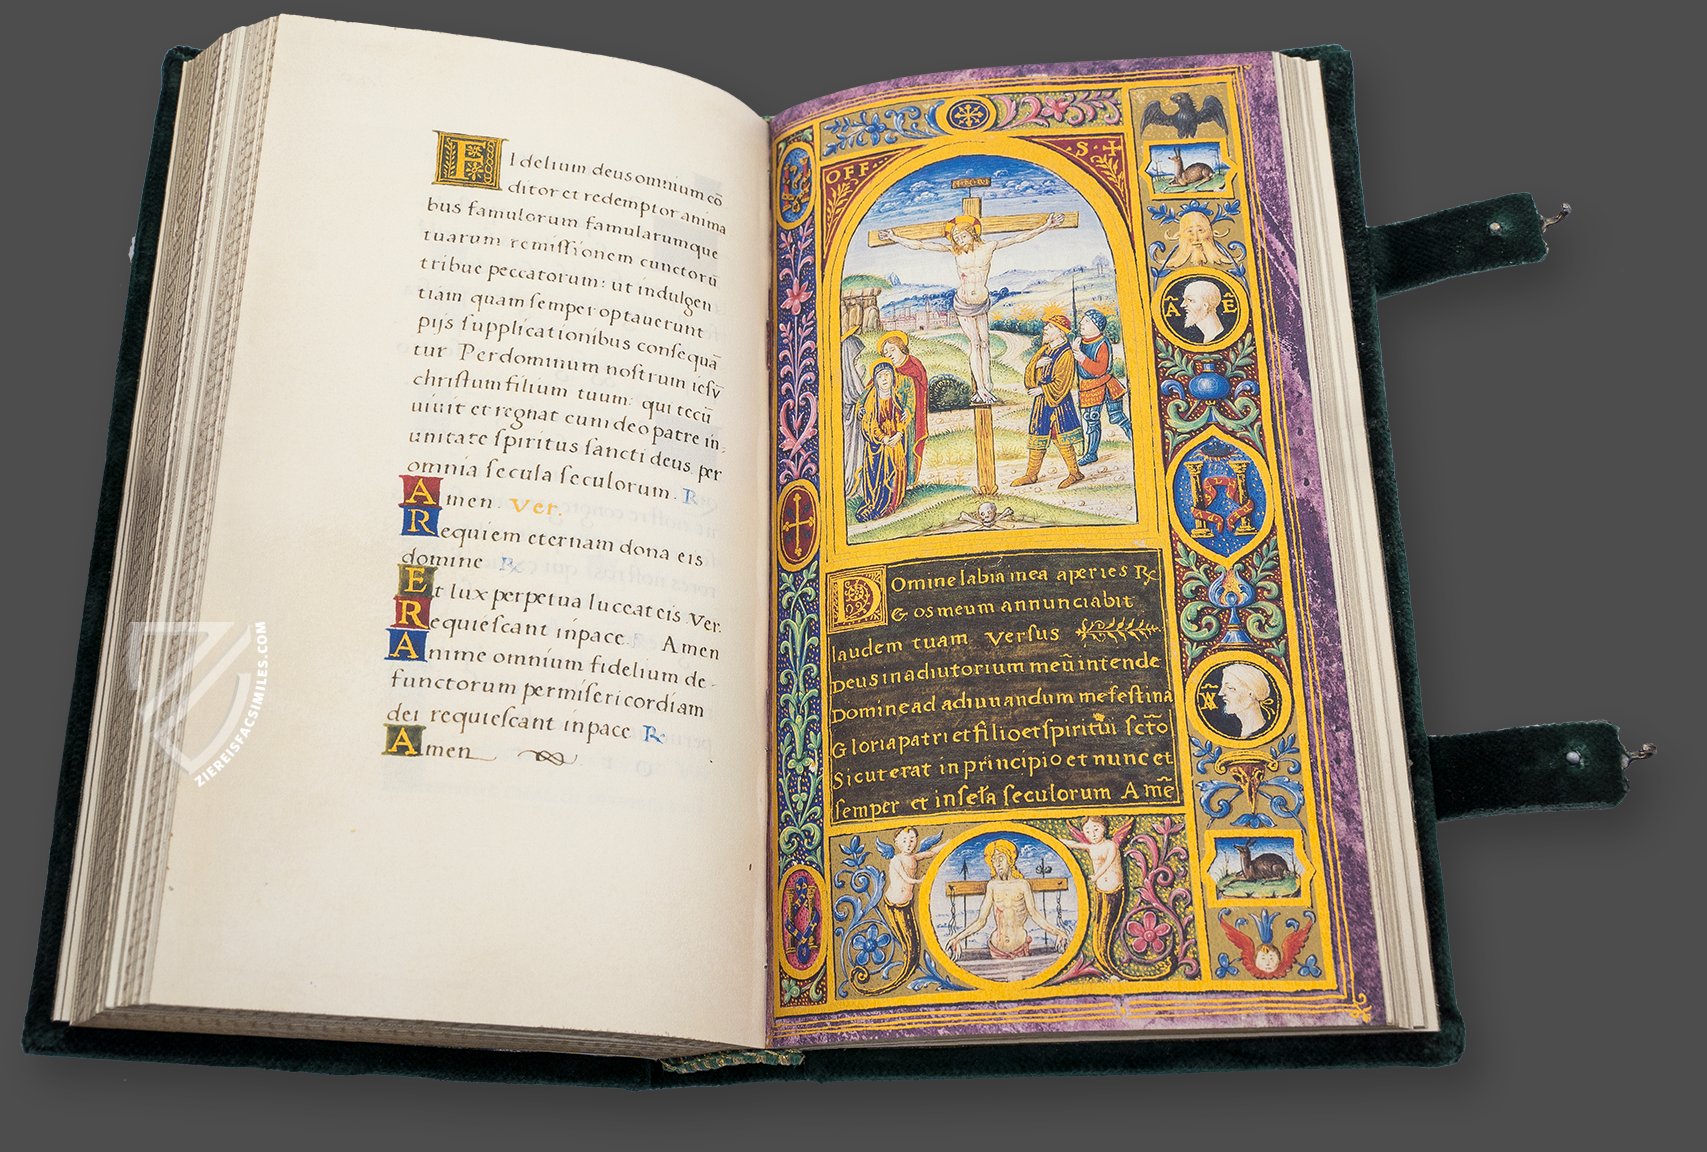 FIdelium deus omnium cō
ditor et redemptor anima
bus famulorum famularumque
tuarum remissionem cunctorū
tribue peccatorum: ut indulgen
tiam quam semper optauerunt
pijs supplicationibus consequā
tur Per dominum nostrum iesv
christum filium tuum: qui tecū
uiuit et regnat cum deo patre in
unitate spiritus sancti deus per
omnia secula seculorum. ℟
Amen. Ver.
Requiem eternam dona eis
domine ℟
Et lux perpetua luceat eis Ver.
Requiescant in pace. Amen
Anime omnium fidelium de-
functorum per misericordiam
dei requiescant in pace ℟
Amen
OFF · S · +
Domine labia mea aperies ℟
& os meum annunciabit
laudem tuam Versus
Deus in adiutorium meū intende
Domine ad adiuuandum me festina
Gloria patri et filio et spiritui scto
Sicut erat in principio et nunc et
semper et in secła seculorum Amē
ZIEREISFACSIMILES.COM